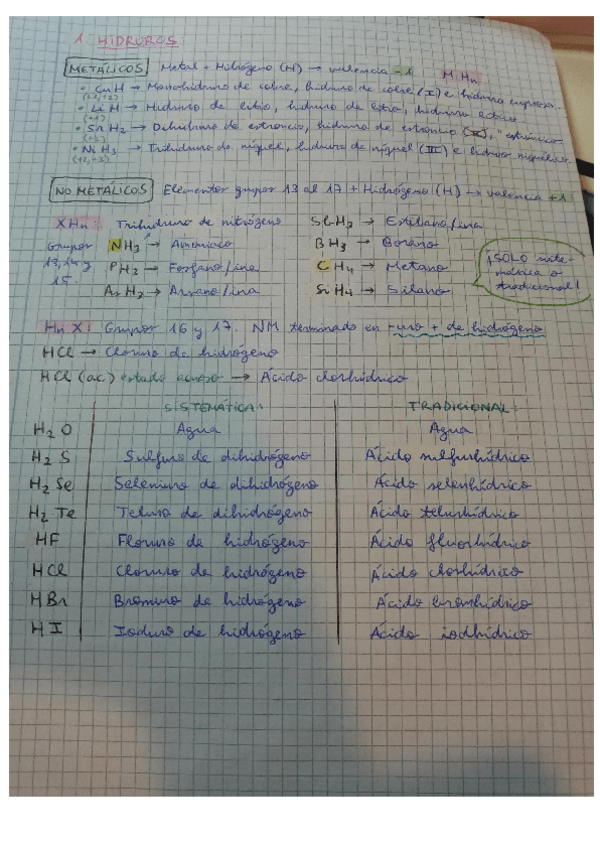 1. HIDRUROS
METÁLICOS Metal + Hidrógeno (H) → valencia -1 M Hn
· CuH → Monohidruro de cobre, hidruro de cobre (I) e hidruro cuproso
(+1,+2)
· LiH → Hidruro de litio, hidruro de litio, hidruro lítico
(+1)
· SrH2 → Dihidruro de estroncio, hidruro de estroncio (II), "
(+2)
· NiH3 → Trihidruro de níquel, hidruro de níquel (III) e hidruro niquélico
(+2,+3)
NO METÁLICOS Elementos grupos 13 al 17 + Hidrógeno (H) → valencia +1
XHn: Trihidruro de nitrógeno SbH3 → Estibano/ina
Grupos NH3 → Amoniaco BH3 → Borano
13, 14 y PH3 → Fosfano/ina CH4 → Metano
15. AsH3 → Arsano/ina SiH4 → Silano
¡SOLO siste-
mática o
tradicional!
HnX: Grupos 16 y 17. NM terminado en -uro + de hidrógeno
HCl → Cloruro de hidrógeno
HCl (ac.) estado acuoso → Ácido clorhídrico
SISTEMÁTICA: TRADICIONAL:
H2O Agua Agua
H2S Sulfuro de dihidrógeno Ácido sulfurhídrico
H2Se Seleniuro de dihidrógeno Ácido selenhídrico
H2Te Teluro de dihidrógeno Ácido telurhídrico
HF Floruro de hidrógeno Ácido fluorhídrico
HCl Cloruro de hidrógeno Ácido clorhídrico
HBr Bromuro de hidrógeno Ácido bromhídrico
HI Ioduro de hidrógeno Ácido iodhídrico